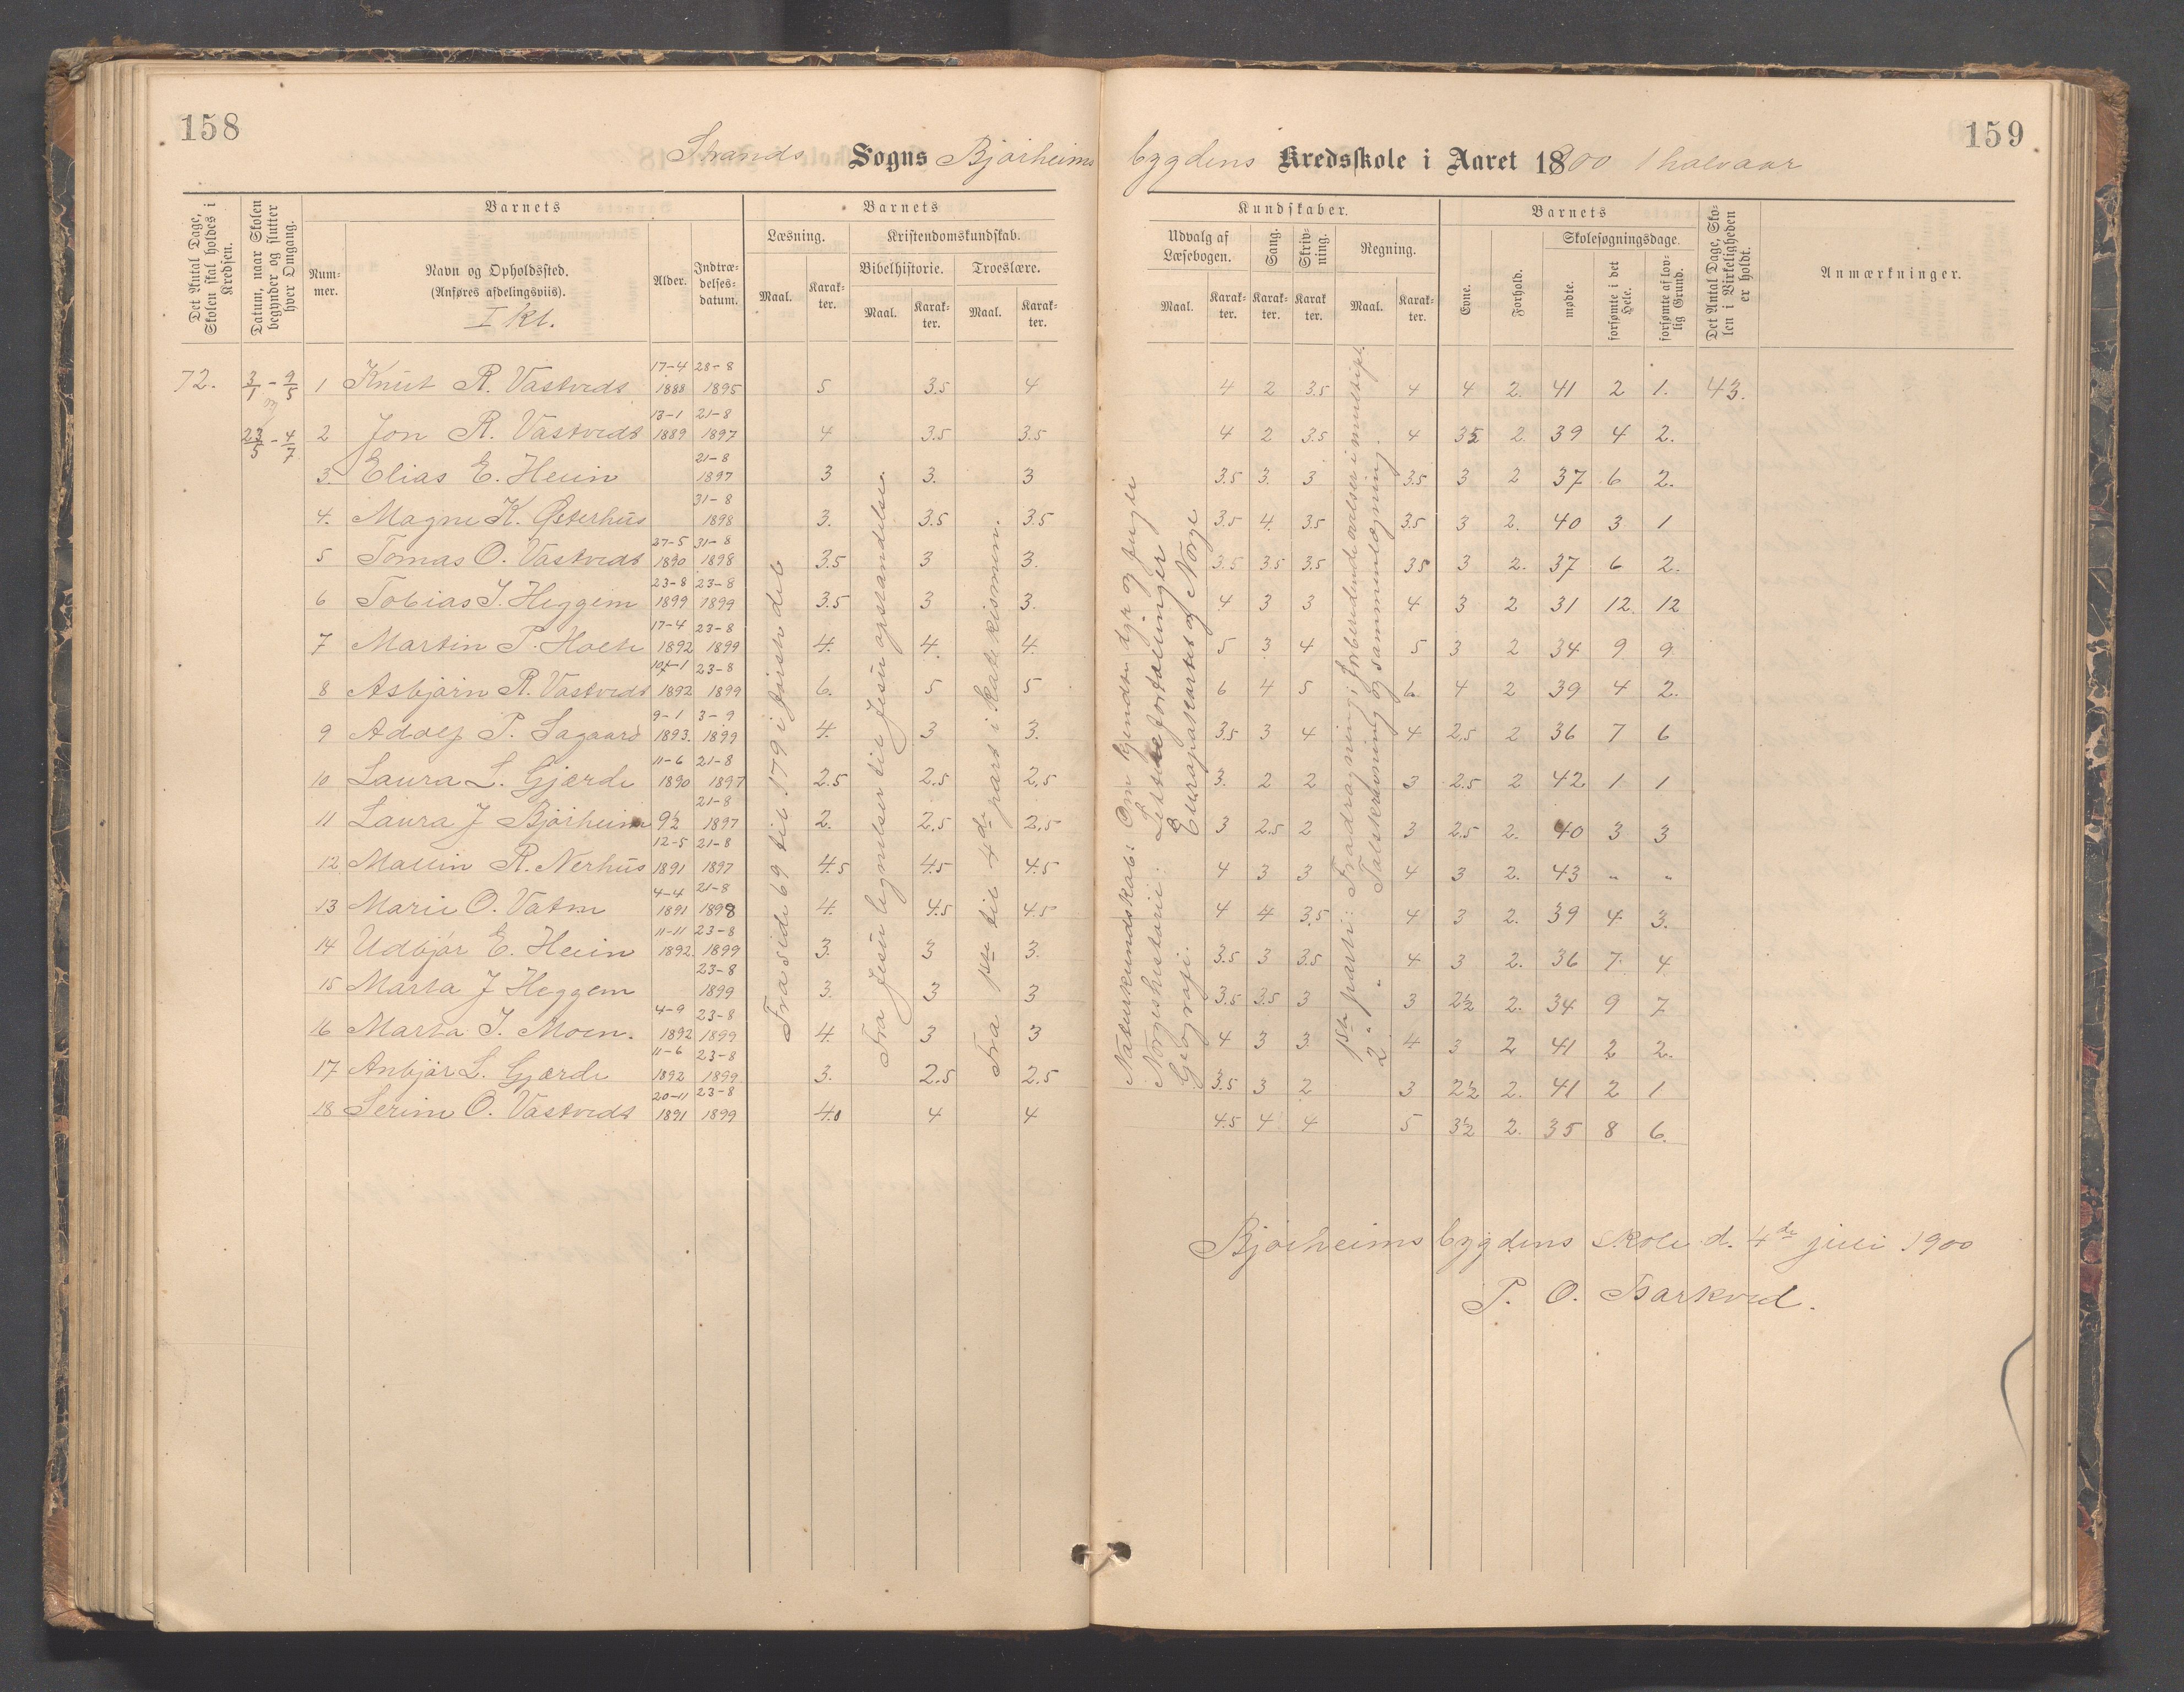 158
159
Strands Sogns Bjørheims bygdens Kredsskole i Aaret 1900 1 halvaar
Det Antal Dage, Skolen skal holdes i Kredsen.
Datum, naar Skolen begynder og slutter hver Omgang.
Barnets
Barnets
Kundskaber.
Barnets
Det Antal Dage, Skolen i Virkeligheden er holdt.
Anmærkninger.
Nummer.
Navn og Opholdssted.
(Anføres afdelingsviis).
I kl.
Alder.
Indtrædelsesdatum.
Læsning.
Kristendomskundskab.
Bibelhistorie.
Troeslære.
Maal.
Karakter.
Maal.
Karakter.
Maal.
Karakter.
Udvalg af Læsebogen.
Sang.
Skrivning.
Regning.
Maal.
Karakter.
Karakter.
Karakter.
Maal.
Karakter.
Evne.
Forhold.
Skolesøgningsdage.
mødte.
forsømte i det Hele.
forsømte af lovlig Grund.
72. 3/1 - 9/5 1 Knut R. Vastveds 17-4 1888 28-8 1895 5 3.5 4 4 2 3.5 4 4 2. 41 2 1. 43.
og
23/5 - 4/7 2 Jon R. Vastveds 13-1 1889 21-8 1897 4 3.5 3.5 4 2 3.5 4 3½ 2. 39 4 2.
3. Elias E. Heiin 21-8 1897 3 3. 3 3.5 3. 3 3.5 3 2 37 6 2.
4. Magne K. Østerhus 31-8 1898 3. 3.5 3.5 3.5 4. 3.5 3.5 3 2. 40 3 1
5 Tomas O. Vastveds 27-5 1890 31-8 1898 3.5 3 3. 3.5 3.5 3.5 3.5 3 2. 37 6 2.
6 Tobias I. Heggem 23-8 1899 23-8 1899 3.5 3 3. 4 3 3 4 3 2 31 12 12
7 Martin P. Holte 17-4 1892 23-8 1899 4. 4. 4. 5 3 4 5 3 2 34 9 9
8 Asbjørn R. Vastveds 1892 23-8 1899 6. 5 5 6 4 5 6. 4 2 39 4 2.
9 Adolf P. Sagaard 9-1 1893. 3-9 1899 4. 3 3. 3.5 3 4 4 2.5 2 36 7 6
10 Laura L. Gjærde 11-6 1890 21-8 1897 2.5 2.5 2.5 3. 2 2 3 2.5 2 42 1 1
11 Laura J Bjørheim 9½ 21-8 1897 2. 2.5 2.5 3 2.5 2 3 2.5 2. 40 3 3
12 Mallin R. Nerhus 12-5 1891 21-8 1897 4.5 4.5 4.5 4 3 3 4 3 2. 43 " "
13 Marie O. Vatne 4-4 1891 21-8 1898 4. 4.5 4.5 4 4 3.5 4 3 2. 39 4 3.
14 Udbjør E. Heiin 11-11 1892. 23-8 1899 3. 3 3. 3.5 3 3.5 4 3 2. 36 7. 4
15 Marta J Heggem 23-8 1899 3. 3 3 3.5 3.5 3 3 2½ 2. 34 9 7
16 Marta I. Moen. 4-9 1892 23-8 1899 4. 3 3 4 3 3. 4 3 2 41 2 2.
17 Anbjør L. Gjærde 11-6 1892 23-8 1899 3. 2.5 2.5 3.5 3 2 3 2½ 2. 41 2 1
18 Serine O. Vastveds 20-11 1891 23-8 1899 4.0 4 4 4.5 4 4 5 3½ 2. 35 8 6.
Fra side 69 til 179 i første del
Fra Jesu lignelser til Jesu opstandelse.
Fra 1ste til 4de part i katekismem.
Naturkundskab: Om hjenden dyr og fugle
Norgeshistorie: fortællinger
Geografi: Europakartet og Norge
1ste parti: Fradragning i forberedende øvelser i multipl.
2 " " Talskrivning og sammenlægning
Bjørheimsbygdens skole d. 4de juli 1900
P. O. Barkved.